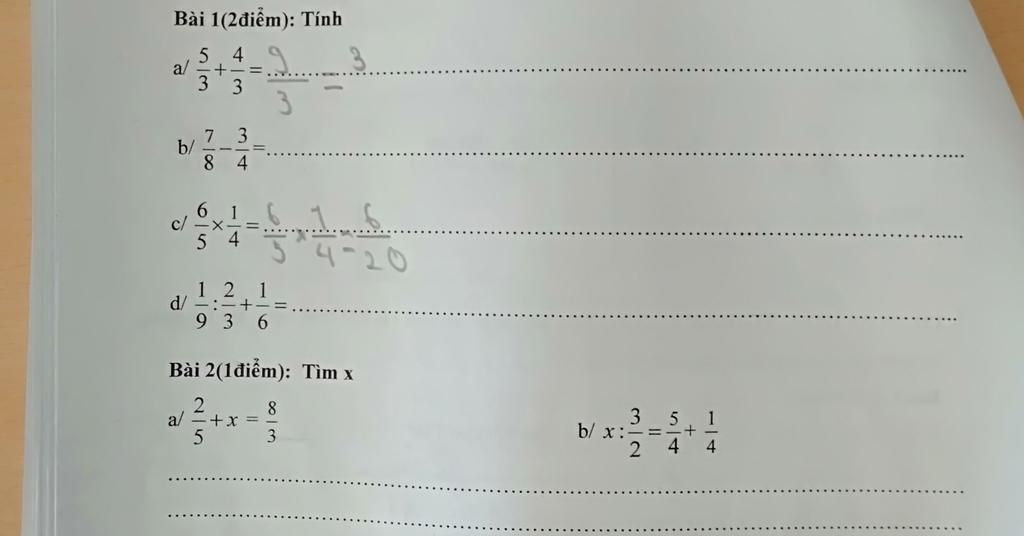 Bài 1(2điểm): Tính
a/ 5/3 + 4/3 = 9/3 = 3
b/ 7/8 − 3/4 =
c/ 6/5 × 1/4 = 6/5 × 1/4 = 6/20
d/ 1/9 : 2/3 + 1/6 =
Bài 2(1điểm): Tìm x
a/ 2/5 + x = 8/3 b/ x : 3/2 = 5/4 + 1/4